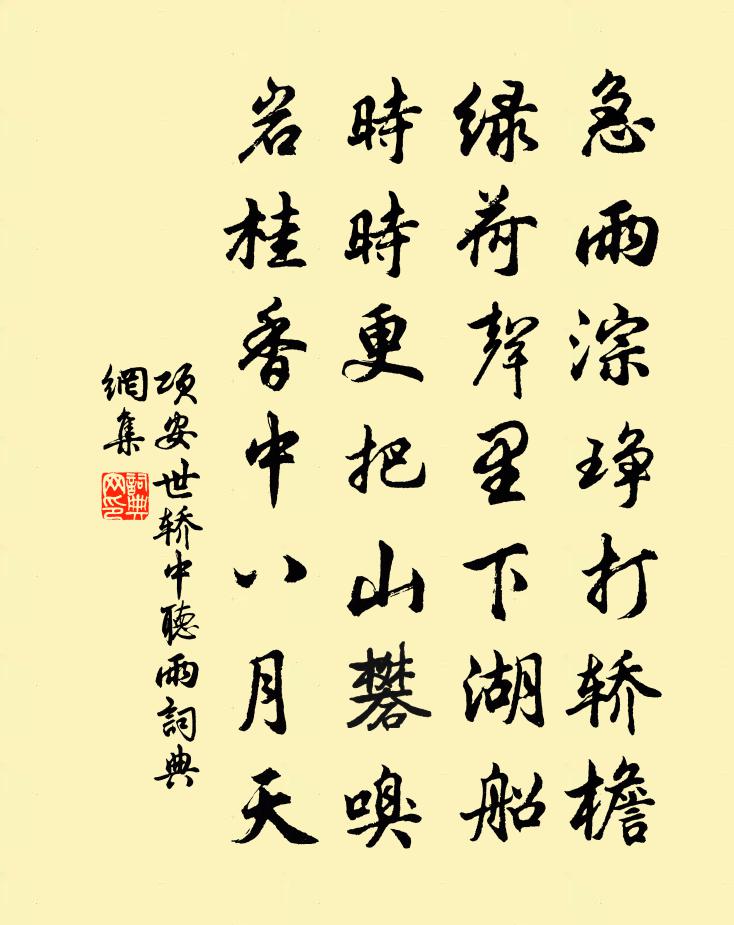 急雨淙琤打轿檐
绿荷聲里下湖船
時時更把山礬嗅
岩桂香中八月天
项安世轿中聽雨詞典
網集
詞典
网印